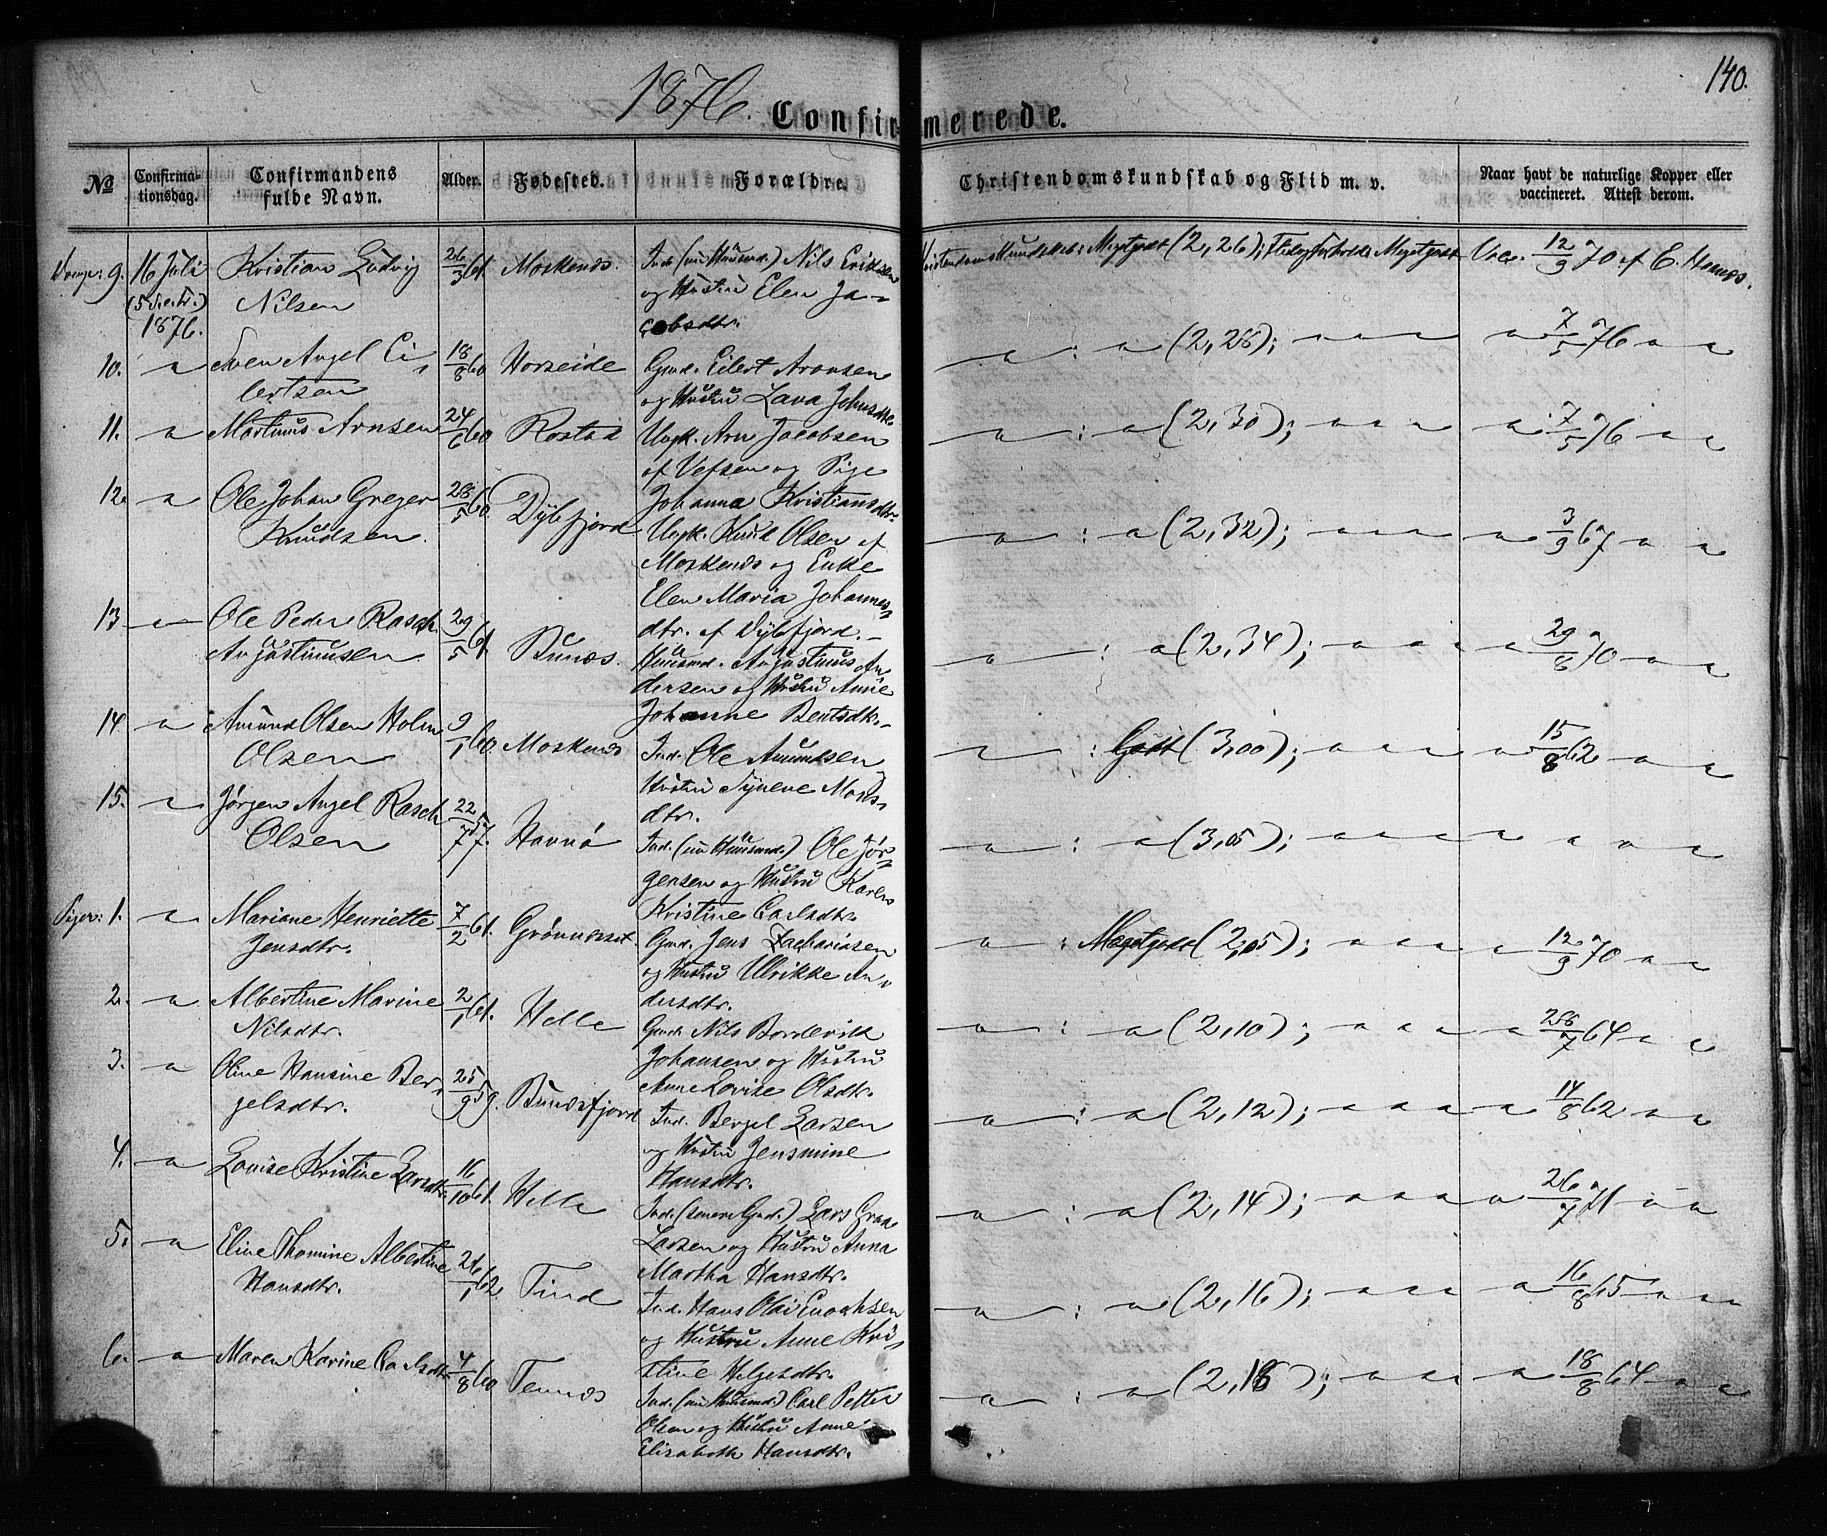 140.
1876. Confirmerede.
No
Confirmationsdag.
Confirmandens fulde Navn.
Alder.
Fødested.
Forældre.
Christendomskundskab og Flid m. v.
Naar havt de naturlige Kopper eller vaccineret. Attest derom.
9. 16 Juli 1876. Kristian Ludvig Nilsen 26/3 61. Moskenes. Ind. (nu Huusmd.) Nils Eriksen og Hustru Elen Jacobsdtr. Kristendomskundskab: Megetgodt (2,26); Megetgodt Vac. 12/9 70 af E. Hornes.
10. " Sven Angel Eilertsen 18/8 60 Horseide Gmd. Eilert Aronsen og Hustru Lava Johnsdtr. " : " (2,28); " " " " 7/5 76 " "
11. " Martinus Arnsen 24/6 60 Rostad Ungk. Arn Jacobsen af Vefsen og Pige Johanna Kristiansdtr. " : " (2,30); " " " " 7/5 76 " "
12. " Ole Johan Greger Knudsen. 28/5 60. Dybfjord Ungk. Knud Olsen af Moskenes og Enke Elen Maria Johannesdtr. af Dybfjord. " : " (2,32); " " " " 3/9 67 " "
13 " Ole Peder Rasch Augustinusen 29/5 61. Bunes. Huusmd. Augustinus Andersen og Hustru Anne Johanne Bentsdtr. " : " (2,34); " " " " 29/8 70 " "
14. " Amund Olsen Holm Olsen 9/1 60. Moskenes Ind. Ole Amundsen Hustru Synene Monsdtr. " : Godt (3,00); " " " " 15/8 62 " "
15. " Jørgen Angel Rasch Olsen 22/7 57. Havnø Ind. (nu Huusmd.) Ole Jørgensen og Hustru Karen Kristine Carlsdtr. " : " (3,05); " " " " " " "
Piger: 1. " Mariane Henriette Jensdtr. 7/2 61. Grønneset. Gmd. Jens Zachariasen og Hustru Ulrikke Andersdtr. " : Megetgodt (2,05); " " " " 12/9 70 " "
2. " Albertine Marine Nilsdtr. 2/1 61. Helle Gmd. Nils Bordevik Johansen og Hustru Anne Lovise Olsdtr. " : " (2,10); " " " " 28/7 64 " "
3. " Oline Hansine Bergelsdtr. 25/9 59. Bunesfjord Ind. Bergel Larsen og Hustru Jensmine Hansdtr. " : " (2,12); " " " " 14/8 62 " "
4. " Lovise Kristine Larsdtr. 16/10 61. Helle Ind. (senere Gmd.) Lars Graa Larsen og Hustru Anna Martha Hansdtr. " : " (2,14); " " " " 26/7 71 " "
5. " Eline Thomine Albertine Hansdtr. 26/1 62 Tind Ind. Hans Olai Enochsen og Hustru Anne Kristine Helgesdtr. " : " (2,16); " " " " 16/8 65 " "
6. " Maren Karine Carlsdtr. 4/8 60 Tennes Ind. (nu Huusmd.) Carl Petter Olsen og Hustru Anne Elisabeth Hansdtr. " : " (2,18); " " " " 18/8 64 " "